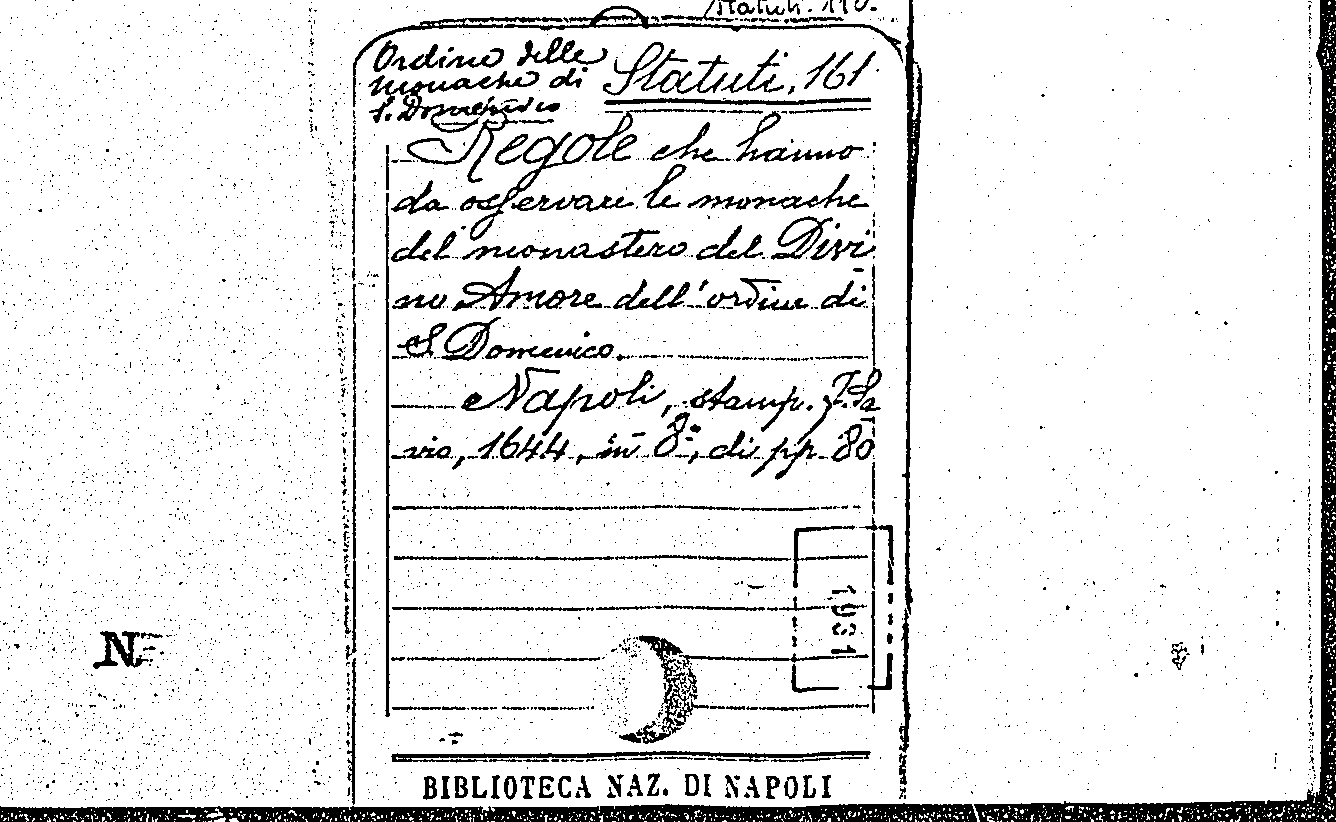 Statuti. 110.
Ordine delle
monache di
S. Domenico
Statuti, 161
Regole che hanno
da osservare le monache
del monastero del Divi-
no Amore dell'ordine di
S. Domenico.
Napoli, stamp. F. Sa-
vio, 1644, in 8º, di pp. 80
1931
N
BIBLIOTECA NAZ. DI NAPOLI